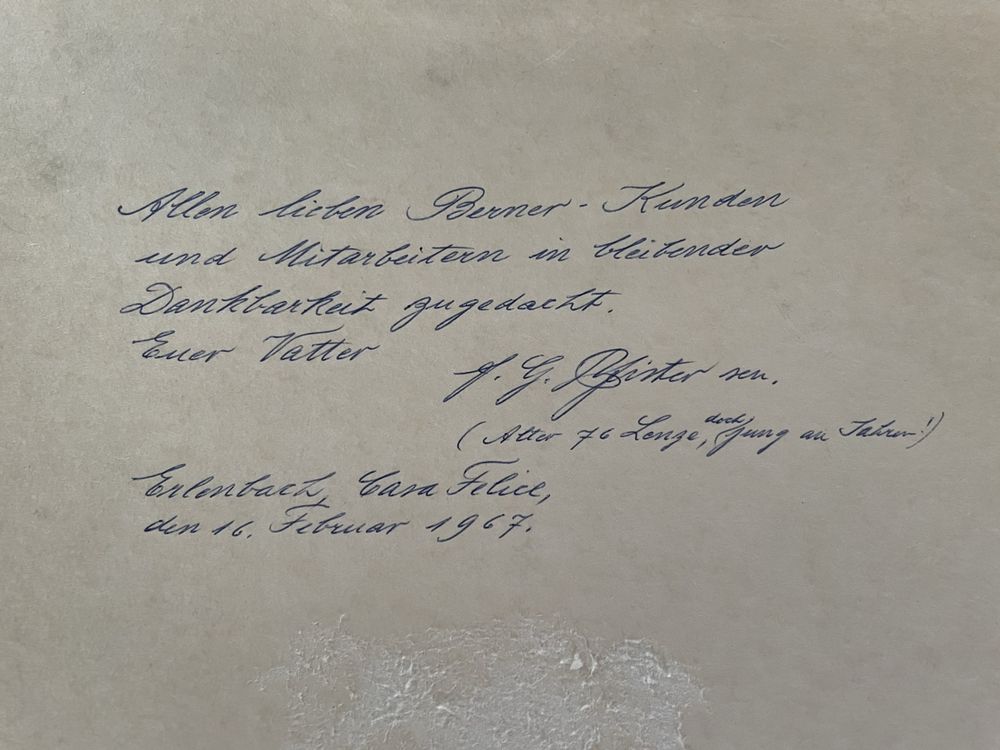 Allen lieben Berner-Kunden
und Mitarbeitern in bleibender
Dankbarkeit zugedacht.
Euer Vatter
f. G. Pfister sen.
(Alter 76 Lenze, doch jung an Jahren!)
Erlenbach, Casa Felice,
den 16. Februar 1967.